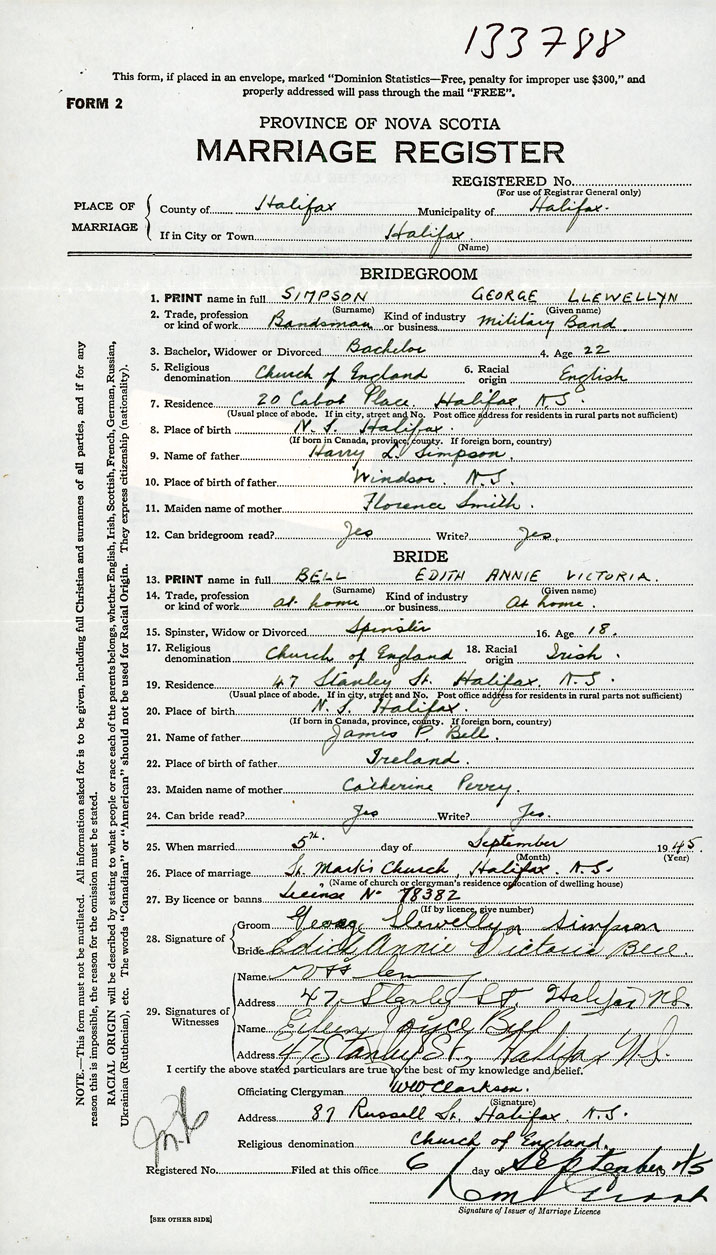 133788
This form, if placed in an envelope, marked "Dominion Statistics—Free, penalty for improper use $300," and
properly addressed will pass through the mail "FREE".
FORM 2
PROVINCE OF NOVA SCOTIA
MARRIAGE REGISTER
REGISTERED No.
(For use of Registrar General only)
PLACE OF MARRIAGE
County of Halifax Municipality of Halifax.
If in City or Town Halifax.
(Name)
BRIDEGROOM
1. PRINT name in full SIMPSON GEORGE LLEWELLYN
(Surname) (Given name)
2. Trade, profession or kind of work Bandsman Kind of industry or business Military Band
3. Bachelor, Widower or Divorced Bachelor 4. Age 22
5. Religious denomination Church of England 6. Racial origin English
7. Residence 20 Cabot Place. Halifax, N.S.
(Usual place of abode. If in city, street and No. Post office address for residents in rural parts not sufficient)
8. Place of birth N.S. Halifax.
(If born in Canada, province, county. If foreign born, country)
9. Name of father Harry L. Simpson.
10. Place of birth of father Windsor. N.S.
11. Maiden name of mother Florence Smith.
12. Can bridegroom read? Yes Write? Yes.
BRIDE
13. PRINT name in full BELL EDITH ANNIE VICTORIA.
(Surname) (Given name)
14. Trade, profession or kind of work at home Kind of industry or business At home.
15. Spinster, Widow or Divorced Spinster 16. Age 18.
17. Religious denomination Church of England 18. Racial origin Irish.
19. Residence 47 Stanley St. Halifax. N.S.
(Usual place of abode. If in city, street and No. Post office address for residents in rural parts not sufficient)
20. Place of birth N.S. Halifax.
(If born in Canada, province, county. If foreign born, country)
21. Name of father James P. Bell.
22. Place of birth of father Ireland.
23. Maiden name of mother Catherine Perry.
24. Can bride read? Yes Write? Yes.
25. When married 5th. day of September 1945.
(Month) (Year)
26. Place of marriage St. Mark's Church, Halifax. N.S.
(Name of church or clergyman's residence or location of dwelling house)
27. By licence or banns License No 78382
(If by licence, give number)
28. Signature of
Groom George Llewellyn Simpson
Bride Edith Annie Victoria Bell.
29. Signatures of Witnesses
Name
Address 47 Stanley St. Halifax NS
Name Eileen Joyce
Address 47 Stanley St., Halifax N.S.
I certify the above stated particulars are true to the best of my knowledge and belief.
Officiating Clergyman WW Clarkson.
(Signature)
Address 87 Russell St. Halifax. N.S.
Religious denomination Church of England.
Registered No. Filed at this office 6 day of September 45
Signature of Issuer of Marriage Licence
[SEE OTHER SIDE]
NOTE.—This form must not be mutilated. All information asked for is to be given, including full Christian and surnames of all parties, and if for any
reason this is impossible, the reason for the omission must be stated.
RACIAL ORIGIN will be described by stating to what people or race each of the parents belongs, whether English, Irish, Scottish, French, German, Russian,
Ukrainian (Ruthenian), etc. The words "Canadian" or "American" should not be used for Racial Origin. They express citizenship (nationality).